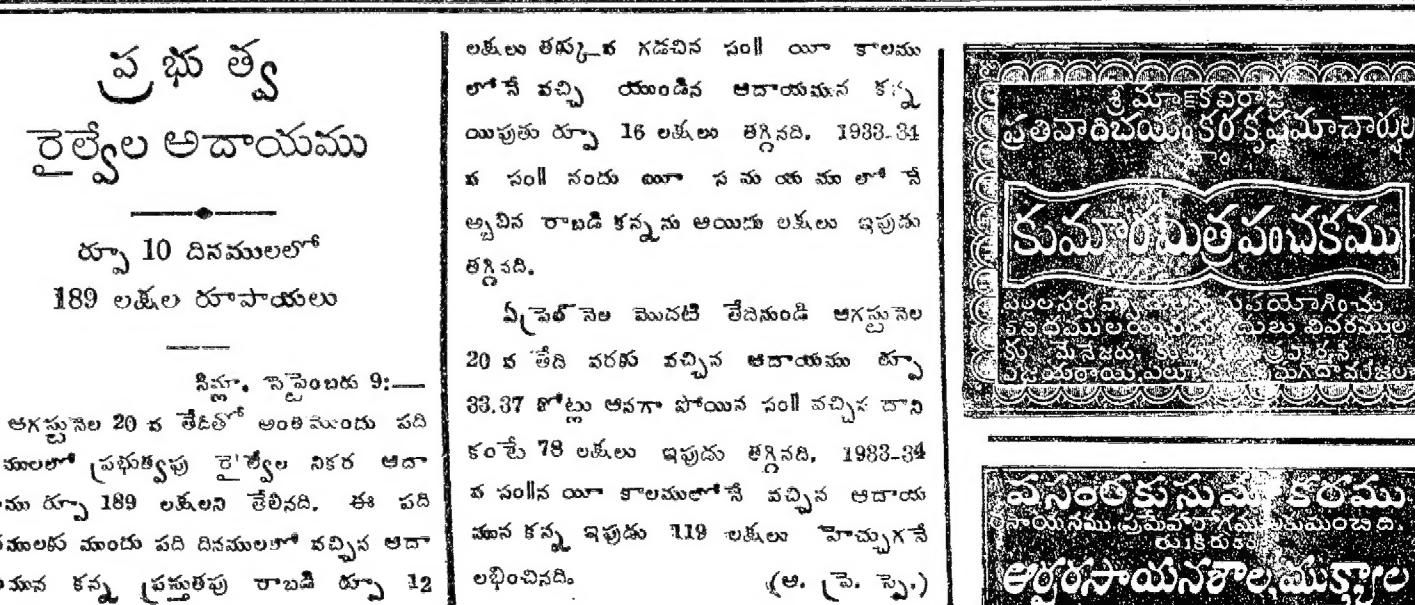 ప్రభుత్వ
రైల్వేల అదాయము
రూ 10 దినములలో
189 లక్షల రూపాయలు
సిమ్లా, సెప్టెంబరు 9:—
ఆగస్టునెల 20 వ తేదీతో అంతిముందు పది
ములలో ప్రభుత్వపు రైల్వేల నికర ఆదా
ము రూ 189 లక్షలని తేలినది. ఈ పది
నములకు ముందు పది దినములలో వచ్చిన ఆదా
మున కన్న ప్రస్తుతపు రాబడి రూ 12
లక్షలు తక్కువ గడచిన సం॥ యీ కాలము
లోనే వచ్చి యుండిన ఆదాయమున కన్న
యిపుతు రూ 16 లక్షలు తగ్గినది. 1933-34
వ సం॥ నందు యీ సమయములోనే
అచ్చిన రాబడి కన్నను ఆయిదు లక్షలు ఇపుడు
తగ్గినది.
ఏప్రెల్ నెల మొదటి తేదినుండి ఆగస్టునెల
20 వ తేది వరకు వచ్చిన ఆదాయము రూ
33.37 కోట్లు ఆనగా పోయిన సం॥ వచ్చిన దాని
కంటే 78 లక్షలు ఇపుడు తగ్గినది. 1933-34
వ సం॥న యీ కాలములోనే వచ్చిన ఆదాయ
మున కన్న ఇపుడు 119 లక్షలు హెచ్చుగనే
లభించినది. (ఆ. ప్రె. స్పె.)
ప్రతివాదిభయంకర కృష్ణమాచార్యుల
కుమారమిత్రపంచకము
వసంతకుసుమాకరము